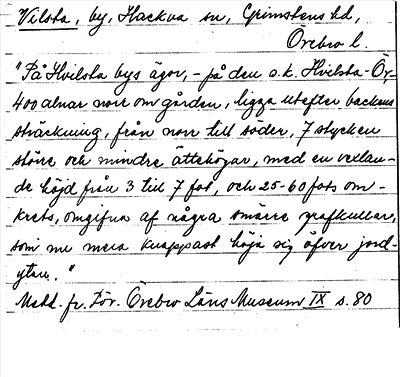 Vilsta, by, Hackva sn, Grimstens hd,
Örebro l.
"På Hvilsta bys ägor, - på den s.k. Hvilsta-Ör,-
400 alnar norr om gården, ligga utefter backens
sträckning, från norr till söder, 7 stycken
större och mindre ättehögar, med en vexlan-
de höjd från 3 till 7 fot, och 25-60 fots om-
krets, omgifna af några smärre grafkullar,
som nu mera knappast höja sig öfver jord-
ytan."
Medd. fr. För. Örebro Läns Museum IX s. 80